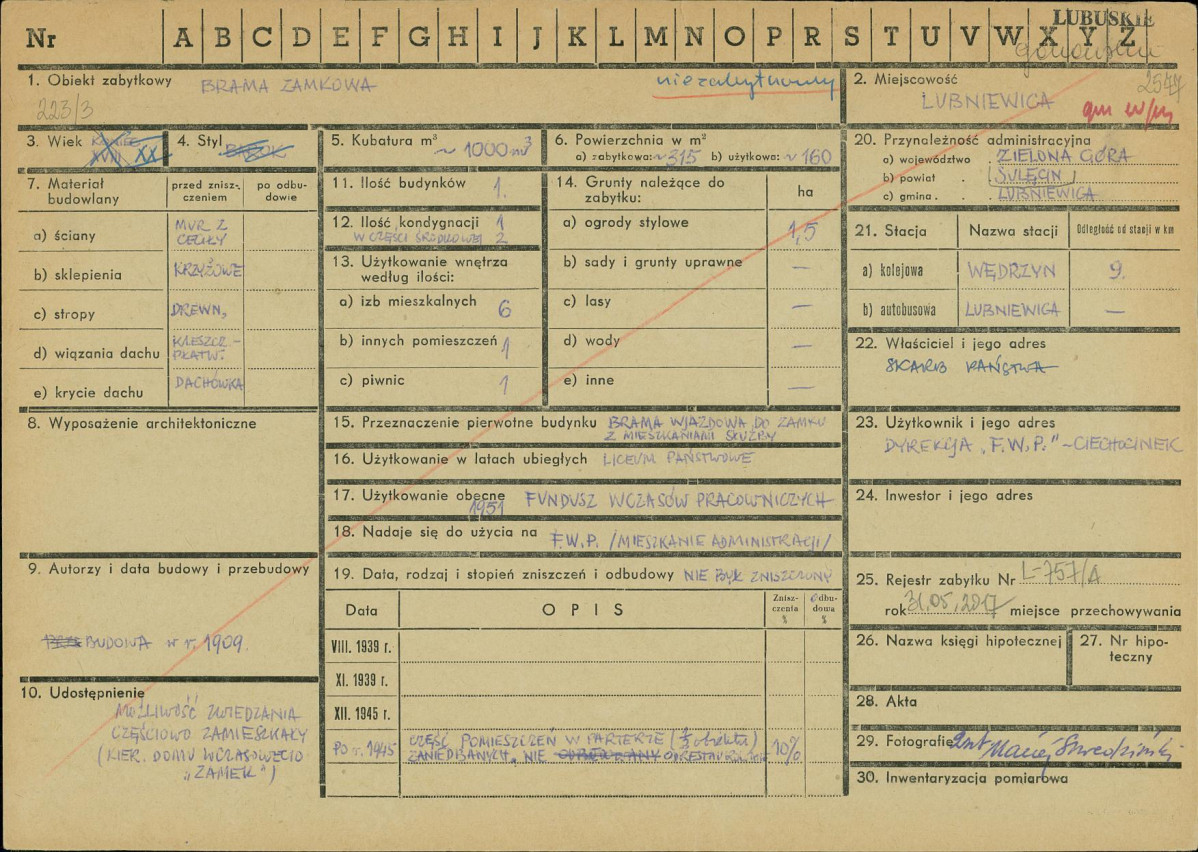 LUBUSKIE
Nr A B C D E F G H I J K L M N O P R S T U V W X Y Z
1. Obiekt zabytkowy BRAMA ZAMKOWA
niezabytkowy
223/3
2. Miejscowość
2547
LUBNIEWICA
3. Wiek XVIII XX
4. Styl BAROK
5. Kubatura m³ ~ 1000 m³
6. Powierzchnia w m²
a) zabytkowa: ~315 b) użytkowa: ~160
20. Przynależność administracyjna
a) województwo . ZIELONA GÓRA
b) powiat . SULĘCIN
c) gmina . . LUBNIEWICA
7. Materiał budowlany
przed znisz-
czeniem
po odbu-
dowie
a) ściany MUR Z
CEGŁY
b) sklepienia KRZYŻOWE
c) stropy DREWN,
d) wiązania dachu KLESZCZ.-
PŁATW.
e) krycie dachu DACHÓWKA
11. Ilość budynków 1.
12. Ilość kondygnacji 1
W CZĘŚCI ŚRODKOWEJ 2
13. Użytkowanie wnętrza
według ilości:
a) izb mieszkalnych 6
b) innych pomieszczeń 1
c) piwnic 1
14. Grunty należące do
zabytku:
ha
a) ogrody stylowe 1,5
b) sady i grunty uprawne —
c) lasy —
d) wody —
e) inne —
21. Stacja Nazwa stacji Odległość od stacji w km
a) kolejowa WĘDRZYN 9.
b) autobusowa LUBNIEWICA —
22. Właściciel i jego adres
SKARB PAŃSTWA
8. Wyposażenie architektoniczne
15. Przeznaczenie pierwotne budynku BRAMA WJAZDOWA DO ZAMKU
Z MIESZKANIAMI SŁUŻBY
16. Użytkowanie w latach ubiegłych LICEUM PAŃSTWOWE
17. Użytkowanie obecne FUNDUSZ WCZASÓW PRACOWNICZYCH
1951
18. Nadaje się do użycia na F.W.P. /MIESZKANIE ADMINISTRACJI/
23. Użytkownik i jego adres
DYREKCJA „F.W.P." – CIECHOCINEK
24. Inwestor i jego adres
9. Autorzy i data budowy i przebudowy
BUDOWA w r. 1909.
19. Data, rodzaj i stopień zniszczeń i odbudowy NIE BYŁ ZNISZCZONY
Data OPIS
Znisz-
czenia
%
Odbu-
dowa
%
VIII. 1939 r.
XI. 1939 r.
XII. 1945 r.
Po r. 1945 CZĘŚĆ POMIESZCZEŃ W PARTERZE (⅓ obiektu) 10%
ZANIEDBANYCH, NIE
25. Rejestr zabytku Nr L-757/A
rok 31.05.2017 miejsce przechowywania
26. Nazwa księgi hipotecznej
27. Nr hipo-
teczny
10. Udostępnienie
MOŻLIWOŚĆ ZWIEDZANIA
CZĘŚCIOWO ZAMIESZKAŁY
(KIER. DOMU WCZASOWEGO
„ZAMEK")
28. Akta
29. Fotografie
30. Inwentaryzacja pomiarowa